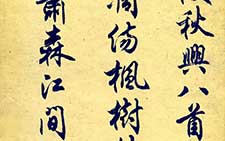 秋興八首
凋傷楓樹
蕭森江間